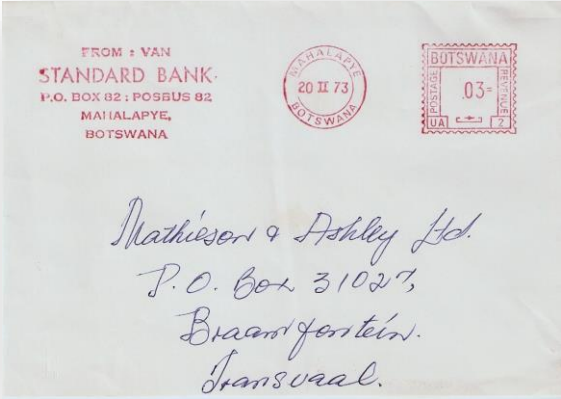 FROM : VAN
STANDARD BANK.
P.O. BOX 82 : POSBUS 82
MAHALAPYE,
BOTSWANA
MAHALAPYE
20 II 73
BOTSWANA
BOTSWANA
POSTAGE
.03=
REVENUE
UA
2
Mathieson & Ashley Ltd.
P.O. Box 31027,
Braamfontein.
Transvaal.